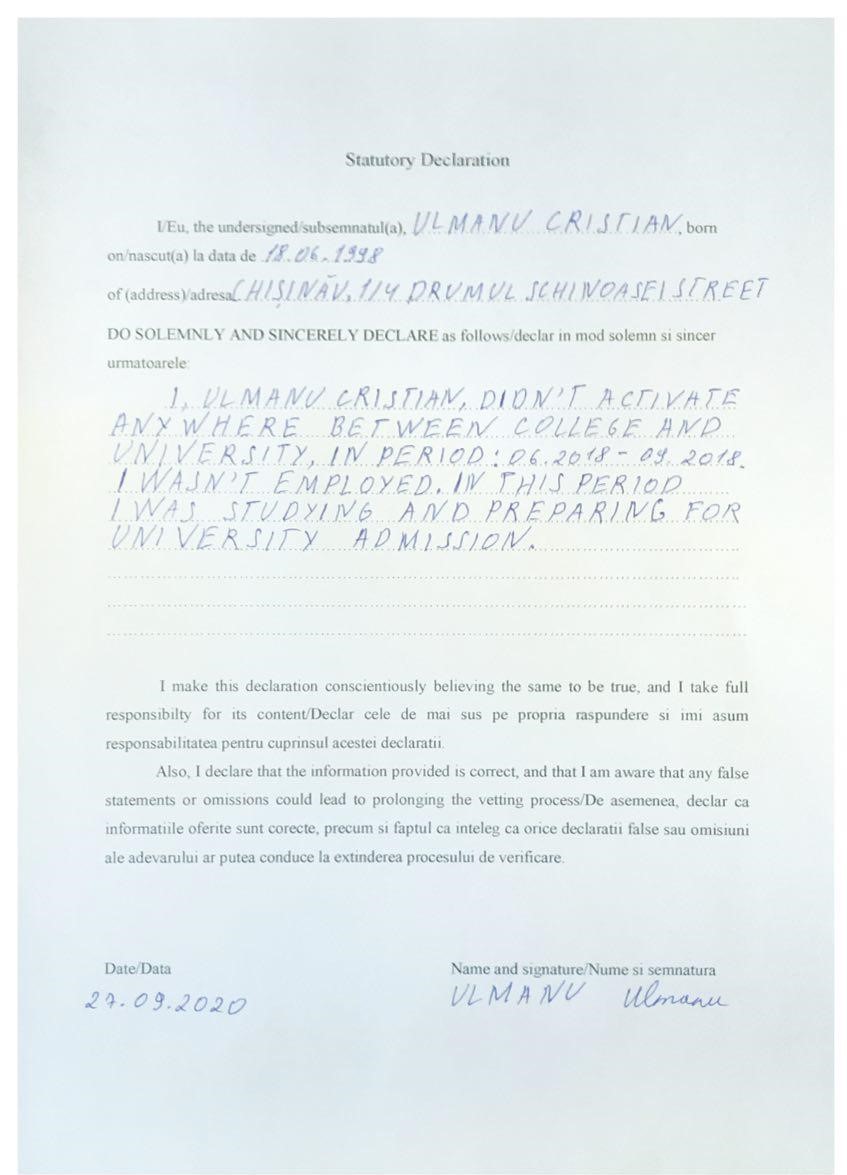 Statutory Declaration
I/Eu, the undersigned/subsemnatul(a), ULMANU CRISTIAN, born
on/nascut(a) la data de 18.06.1998
of (address)/adresa CHIȘINĂV, 1/4 DRUMUL SCHINOASEI STREET
DO SOLEMNLY AND SINCERELY DECLARE as follows/declar in mod solemn si sincer
urmatoarele:
I, ULMANU CRISTIAN, DIDN'T ACTIVATE
ANYWHERE BETWEEN COLLEGE AND
UNIVERSITY, IN PERIOD: 06.2018 - 09.2018.
I WASN'T EMPLOYED. IN THIS PERIOD
I WAS STUDYING AND PREPARING FOR
UNIVERSITY ADMISSION.
I make this declaration conscientiously believing the same to be true, and I take full
responsibilty for its content/Declar cele de mai sus pe propria raspundere si imi asum
responsabilitatea pentru cuprinsul acestei declaratii.
Also, I declare that the information provided is correct, and that I am aware that any false
statements or omissions could lead to prolonging the vetting process/De asemenea, declar ca
informatiile oferite sunt corecte, precum si faptul ca inteleg ca orice declaratii false sau omisiuni
ale adevarului ar putea conduce la extinderea procesului de verificare.
Date/Data
Name and signature/Nume si semnatura
27.09.2020
ULMANU Ulmanu